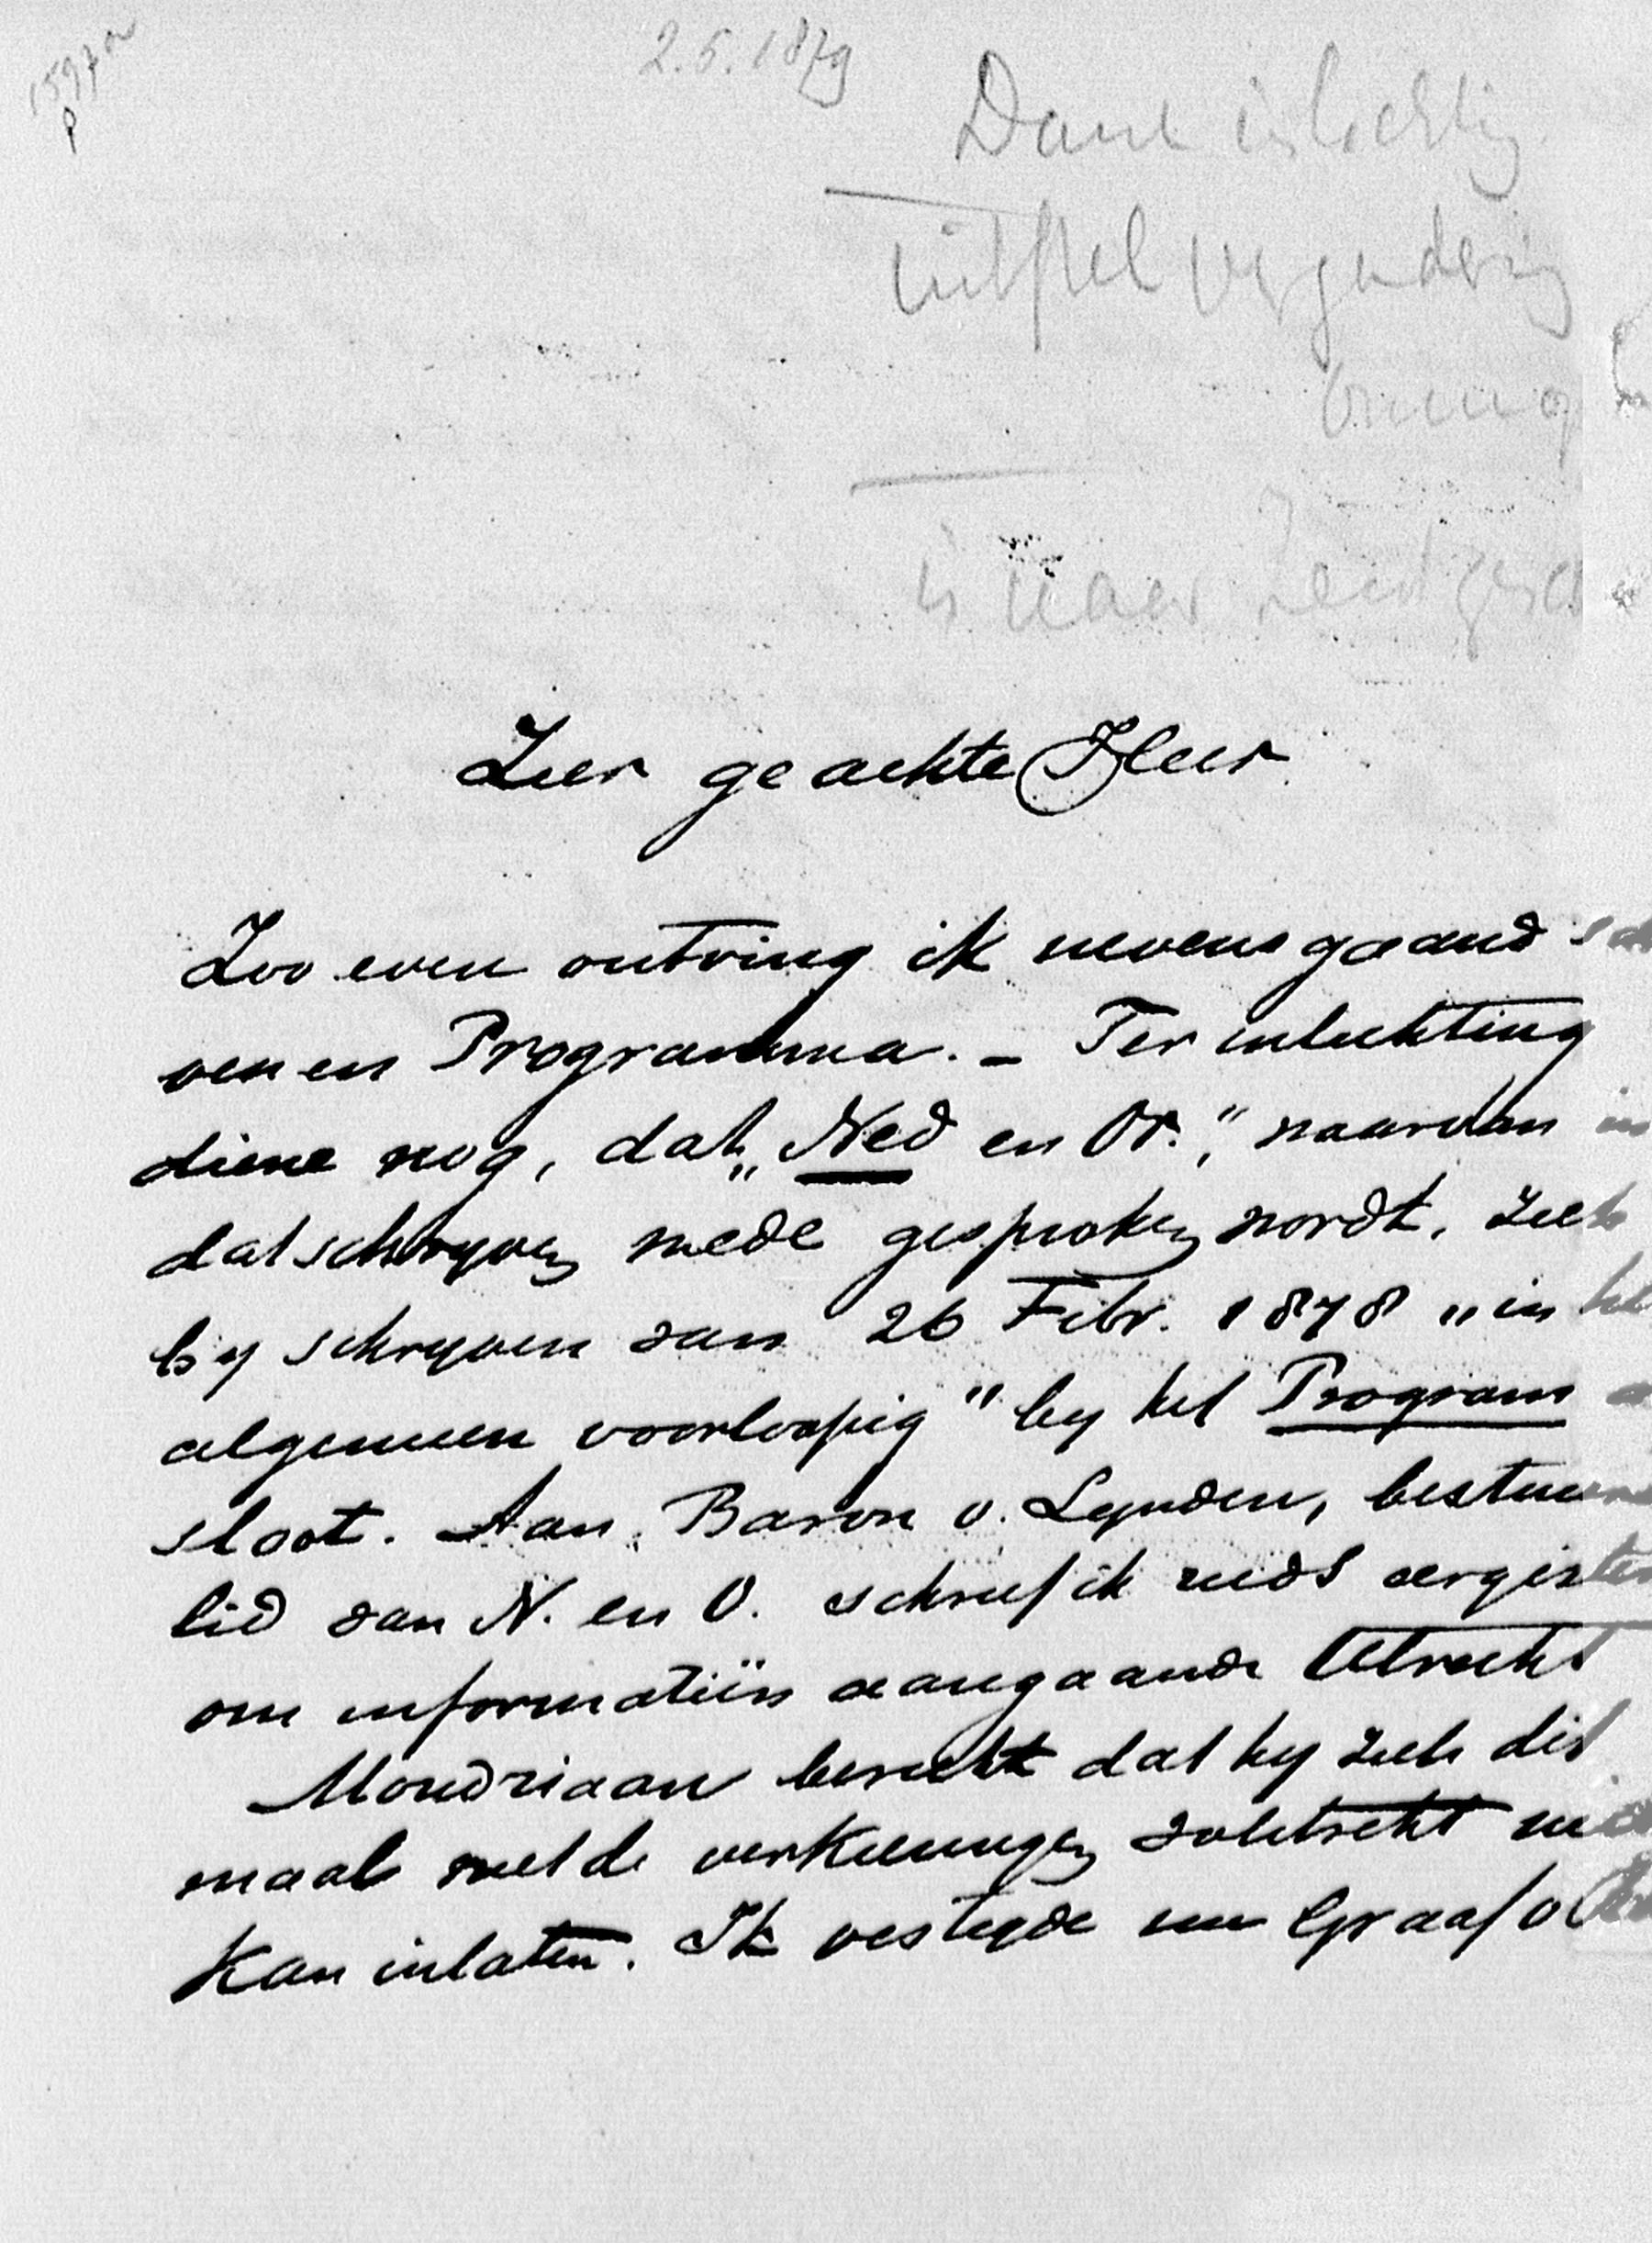 2.5.1879
Dank
uitstel vergadering
is naar
Zeer geachte Heer
Zoo even ontving ik nevensgaand
ven en Programma. – Ter inlichting
diene nog, dat „Ned en Or.,” waarvan in
dat schryven mede gesproken wordt, zich
by schryven van 26 Febr. 1878 „in het
algemeen voorloopig” by het Program
sloot. Aan Baron v. Lynden, bestuurs
lid van N. en O. schreef ik reeds eergister
om informatiën aangaande Utrecht
Mondriaan bericht dat hy zich dit
maal met de verkiezingen volstrekt niet
kan inlaten. Ik vestigde nu Graaf v